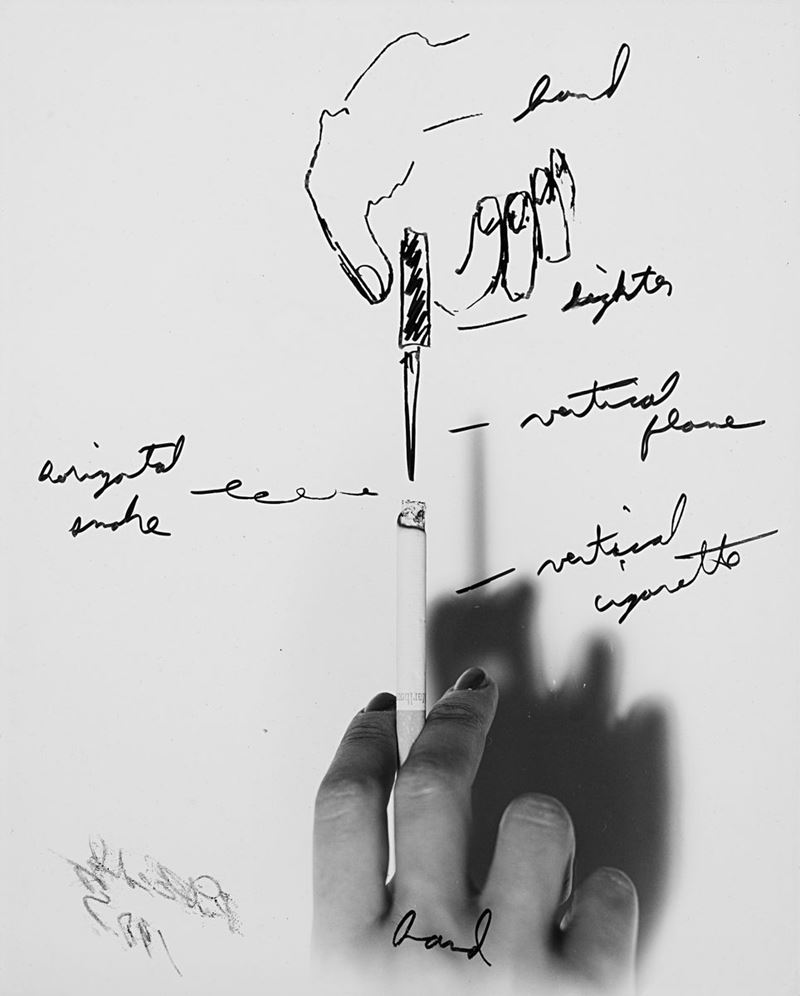 hand
lighter
vertical
flame
horizontal
smoke
vertical
cigarette
hand